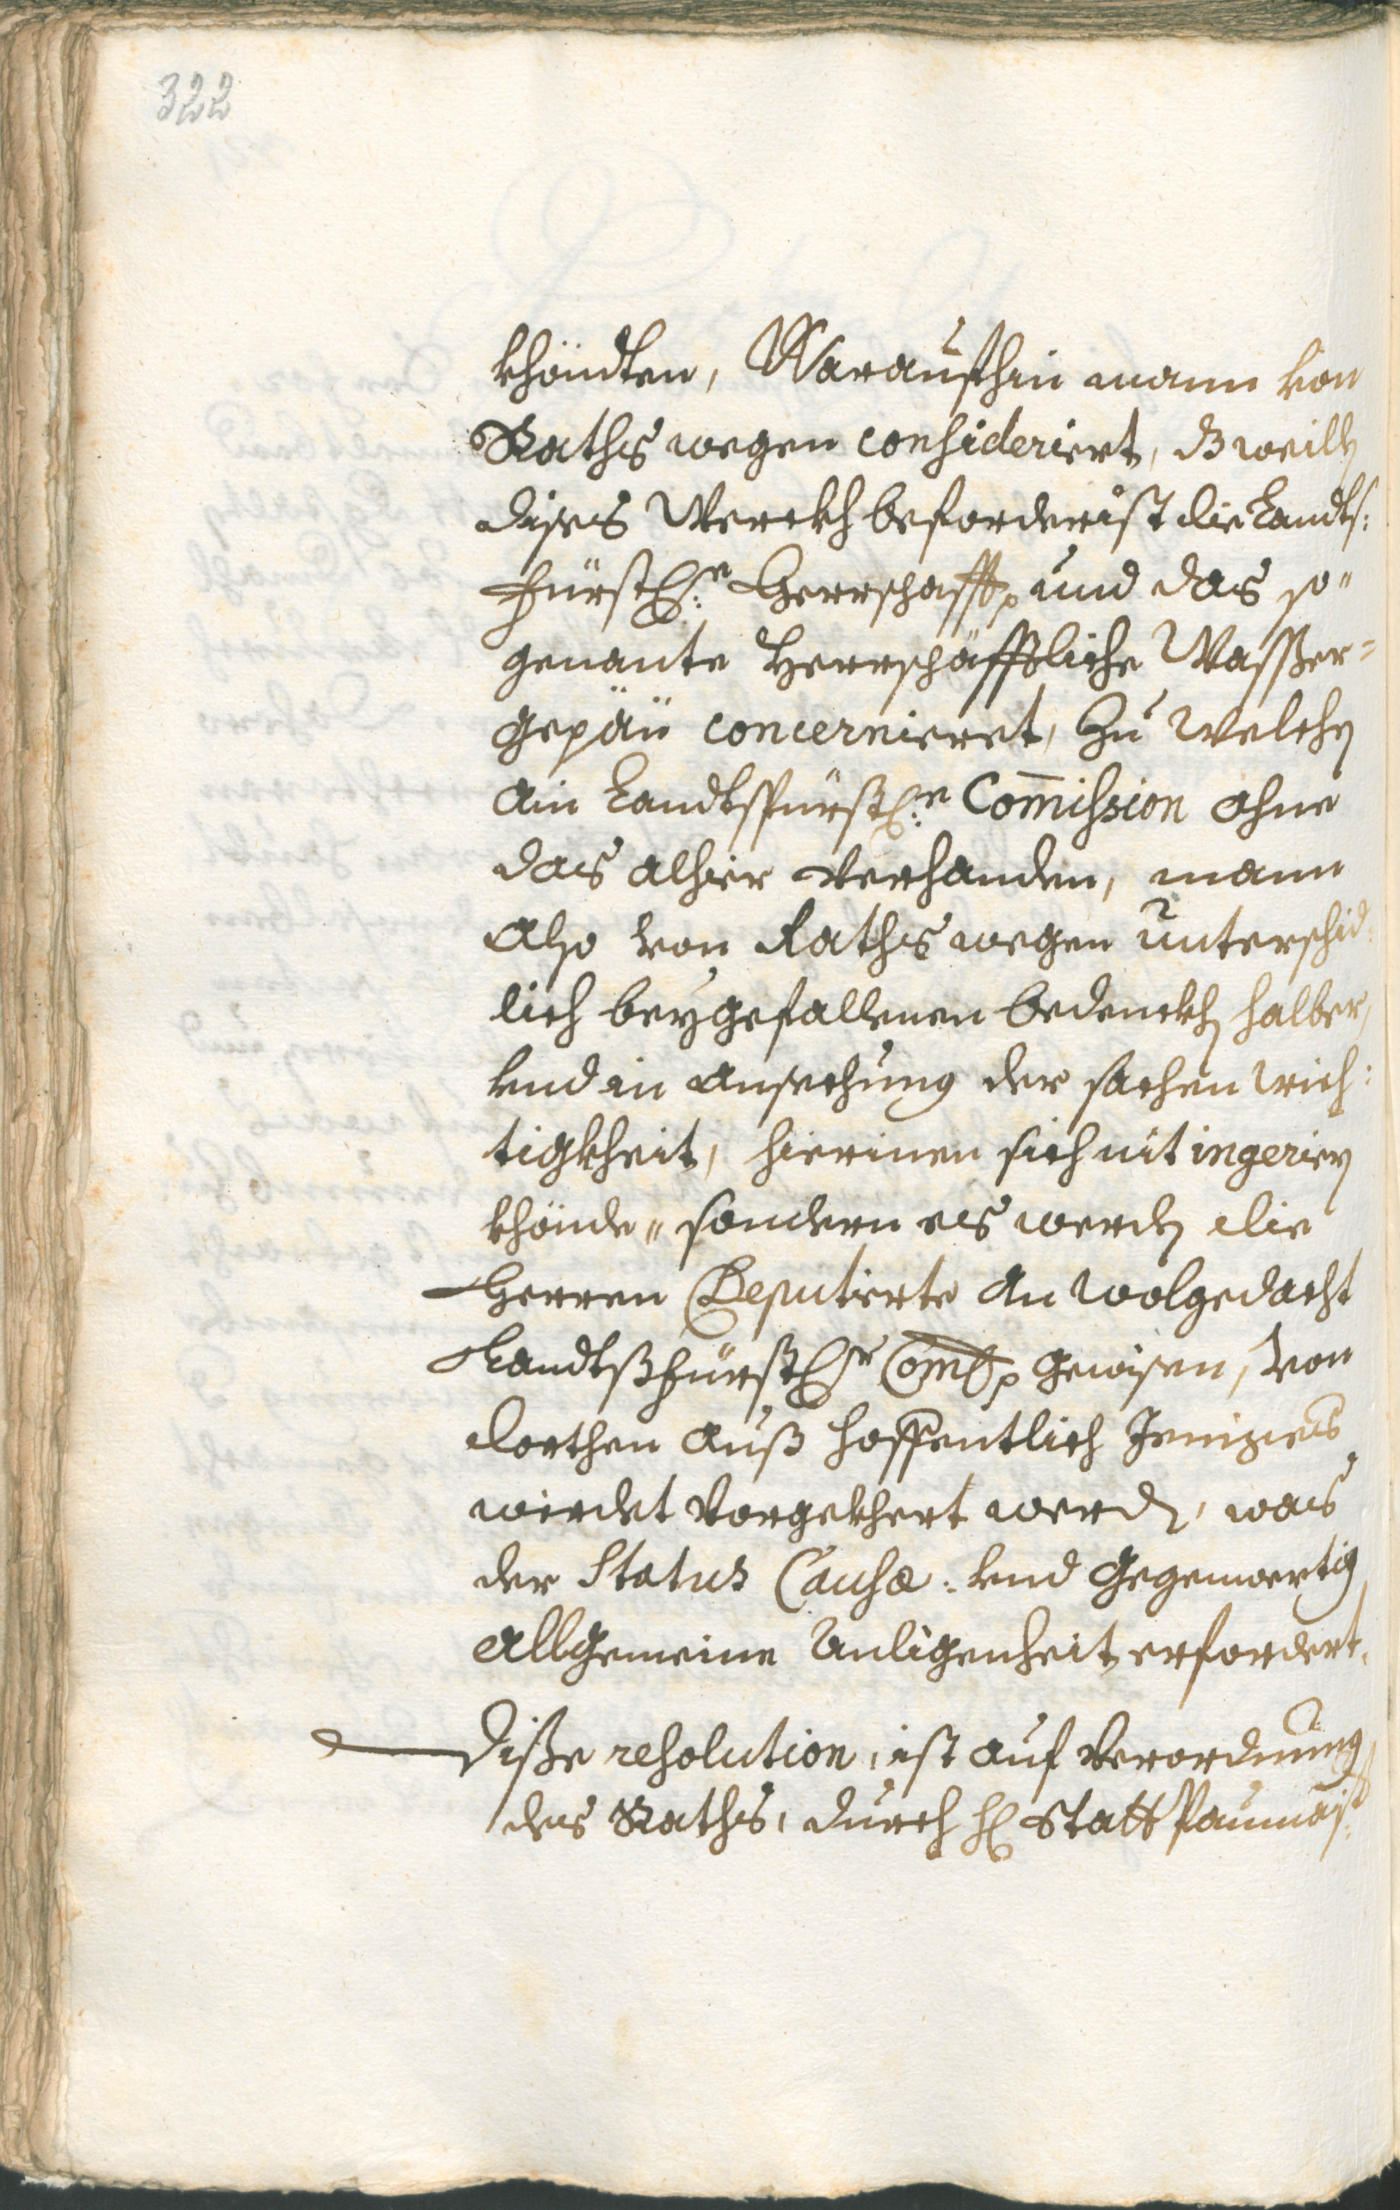 322
khöndten, Waraufhin mann von
Raths wegen consideriert, dz weilln
dises Werckh beforderist die Landts:
Fürstl:e Herrschafft, und das so"
genante Herrschäfftliche Wasßer=
gepäü concernieret, Zu Welchen
ain Landtsfürstl:e Com̅ission ohne
das alhier verhanden, mann
also von Raths wegen unterschid:
lich beygefallenen bedenckhen halber,
vnd in ansechung der sachen wich:
tigkheit, hierinen sich nit ingerieren
khönde" sondern es werden die
Herren Deputierte an wolgedacht
Landtßfürstl:e Com̅ gewisen, von
dorthen auß hoffentlich Jeniges
wirdet vorgekhert werden, was
der Status Causæ: vnd gegenwertig
allgemeine Anligenheit erfordert.
Diße resolution, ist auf verordnung
des Raths, durch H Statt Paumaist: